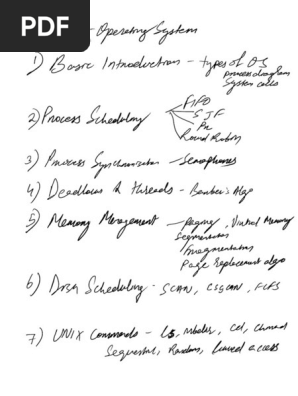 PDF
- Operating System
1) Basic Introduction - types of OS
process diagram
System calls
2) Process Scheduling
FIFO
SJF
Pr
Round Robin
3) Process Synchronization - Semaphores
4) Deadlocks & threads - Banker's Algo
5) Memory Management - Paging, Virtual Memory
Segmentation
Fragmentation
Page replacement algo
6) Disk Scheduling - SCAN, CSCAN, FCFS
7) UNIX Commands - ls, mkdir, cat, chmod
Sequential, Random, linked access